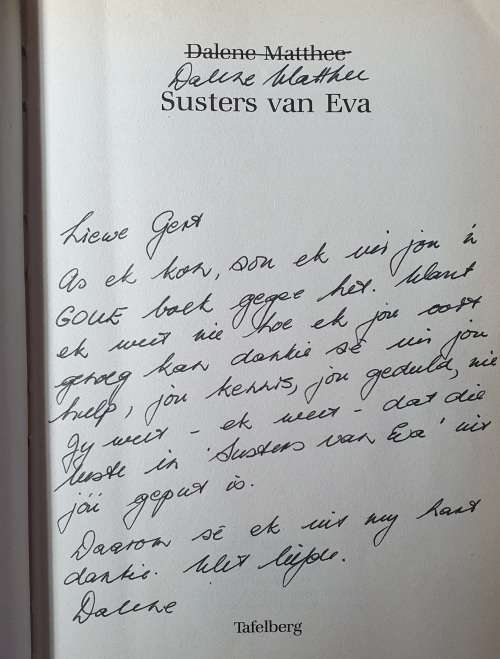 Dalene Matthee
Dalene Matthee
Susters van Eva
Liewe Gert
As ek kon, sou ek vir jou 'n
GOUE boek gegee het. Want
ek weet nie hoe ek jou ooit
genoeg kan dankie sê vir jou
hulp, jou kennis, jou geduld, nie
Jy weet - ek weet - dat die
beste in 'Susters van Eva' uit
jóú geput is.
Daarom sê ek uit my hart
dankie. Met liefde.
Dalene
Tafelberg